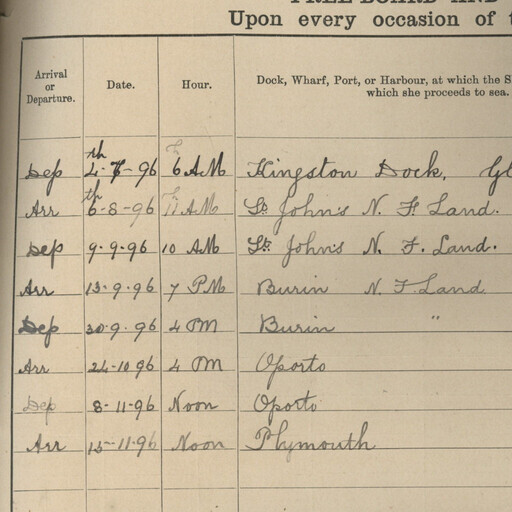 Upon every occasion of
Arrival or Departure. Date. Hour. Dock, Wharf, Port, or Harbour, at which the S
which she proceeds to sea.
Dep 4th-7-96 6 AM Kingston Dock, Gl
Arr 6th-8-96 11 AM St John's N. F. Land.
Dep 9.9.96 10 AM St John's N. F. Land.
Arr 13.9.96 7 PM Burin N. F. Land
Dep 30.9.96 4 PM Burin "
Arr 24-10 96 4 PM Oporto
Dep 8-11-96 Noon Oporto
Arr 15-11-96 Noon Plymouth